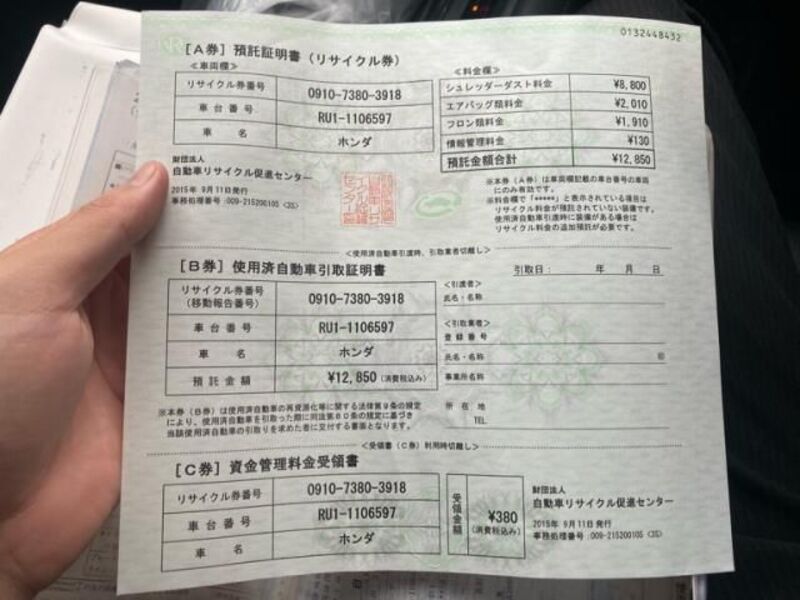 0132448432
[A券] 預託証明書(リサイクル券)
<車両欄>
リサイクル券番号 0910-7380-3918
車台番号 RU1-1106597
車名 ホンダ
<料金欄>
シュレッダーダスト料金 ¥8,800
エアバッグ類料金 ¥2,010
フロン類料金 ¥1,910
情報管理料金 ¥130
預託金額合計 ¥12,850
財団法人
自動車リサイクル促進センター
2015年 9月11日発行
事務処理番号:009-215200105 <3S>
※本券(A券)は車両欄記載の車台番号の車両
にのみ有効です。
※料金欄で「*****」と表示されている場合は
リサイクル料金が預託されていない装備です。
使用済自動車引渡時に装備がある場合は
リサイクル料金の追加預託が必要です。
<使用済自動車引渡時、引取業者切離し>
[B券] 使用済自動車引取証明書
引取日: 年 月 日
リサイクル券番号
(移動報告番号) 0910-7380-3918
車台番号 RU1-1106597
車名 ホンダ
預託金額 ¥12,850 (消費税込み)
<引渡者>
氏名・名称
<引取業者>
登録番号
氏名・名称 ㊞
事業所名称
所在地
TEL
※本券(B券)は使用済自動車の再資源化等に関する法律第9条の規定
により、使用済自動車を引取った際に同法第80条の規定に基づき
当該使用済自動車の引取りを求めた者に交付する書面となります。
<受領書(C券)利用時切離し>
[C券] 資金管理料金受領書
リサイクル券番号 0910-7380-3918
車台番号 RU1-1106597
車名 ホンダ
受領金額 ¥380
(消費税込み)
財団法人
自動車リサイクル促進センター
2015年 9月11日発行
事務処理番号:009-215200105 <3S>